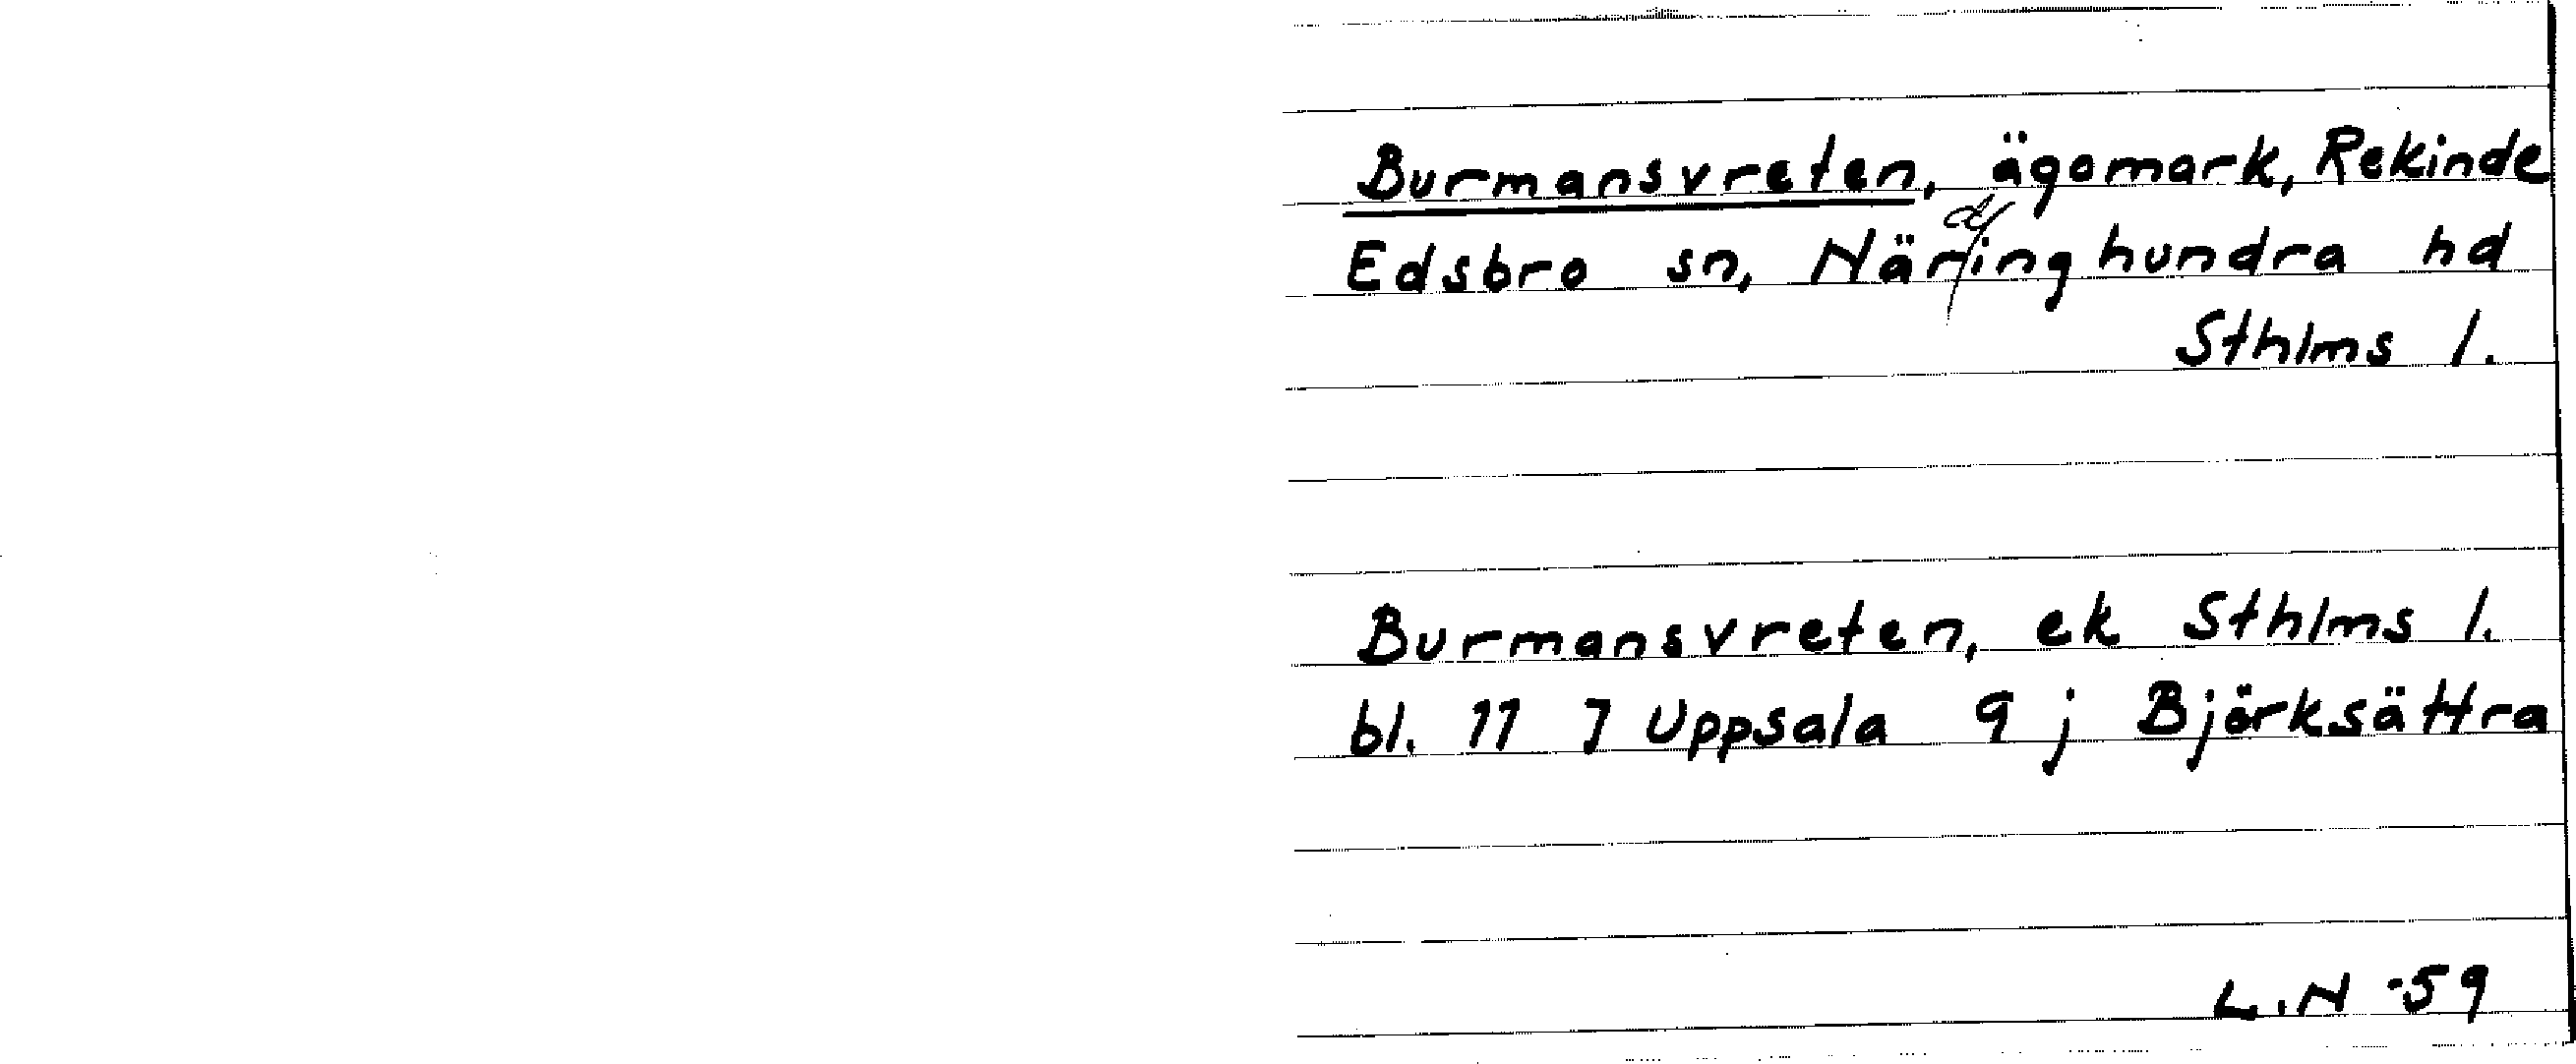 Burmansvreten, ägomark, Rekinde
Edsbro sn, Närdinghundra hd
Sthlms l.
Burmansvreten, ek Sthlms l.
bl. 11 J Uppsala 9 j Björksättra
L.N -59